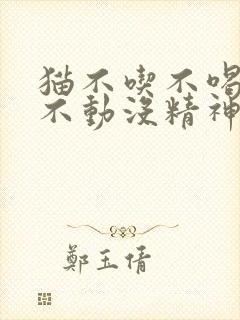 猫不喫不喝
不動沒精神
鄭玉倩